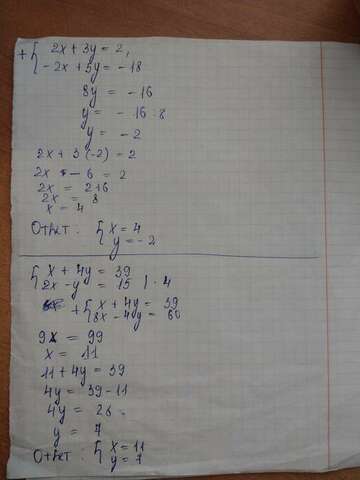 + { 2x + 3y = 2,
{ -2x + 5y = -18
8y = -16
y = -16 : 8
y = -2
2x + 3 (-2) = 2
2x - 6 = 2
2x = 2+6
2x = 8
x = 4
Ответ: { x = 4
{ y = -2
{ x + 4y = 39
{ 2x - y = 15 | · 4
+ { x + 4y = 39
{ 8x - 4y = 60
9x = 99
x = 11
11 + 4y = 39
4y = 39 - 11
4y = 28
y = 7
Ответ: { x = 11
{ y = 7